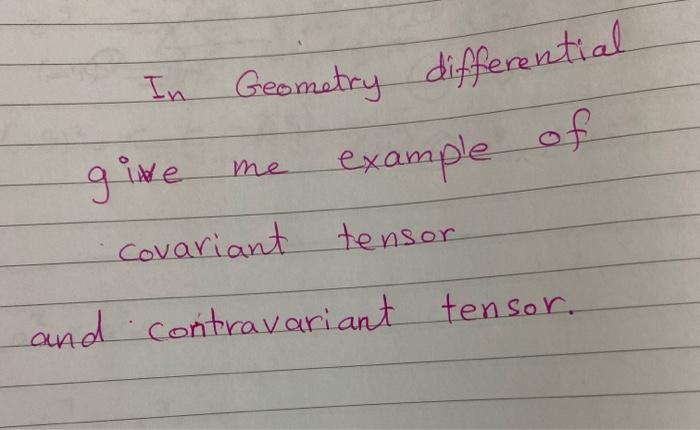 In Geometry differential
give me example of
covariant tensor
and contravariant tensor.